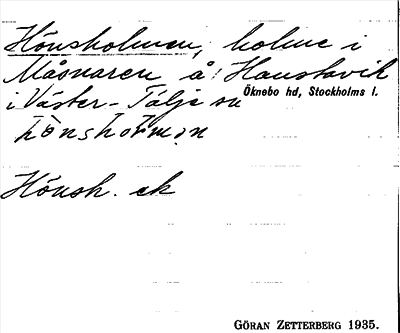 Hönsholmen, holme i
Måsnaren å Hanstavik
i Väster-Tälje sn
Öknebo hd, Stockholms l.
hònshòrmən
Hönsh. ek
GÖRAN ZETTERBERG 1935.